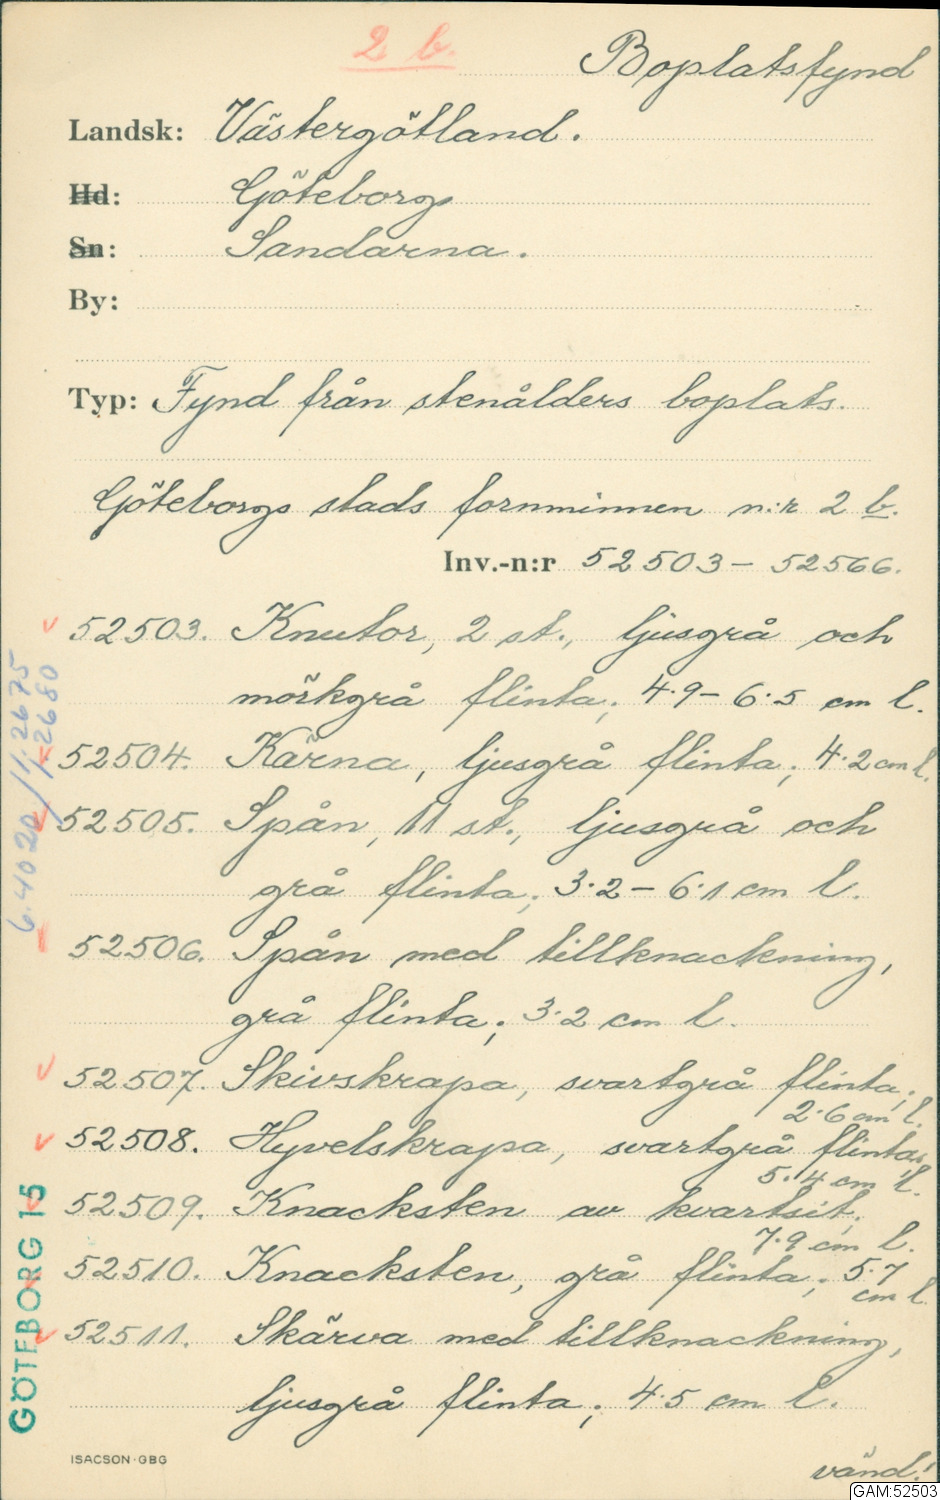 2 b.
Boplatsfynd
Landsk: Västergötland.
Hd: Göteborg
Sn: Sandarna.
By:
Typ: Fynd från stenålders boplats.
Göteborgs stads fornminnen n:r 2 b.
Inv.-n:r 52503 – 52566.
52503. Knutor, 2 st., ljusgrå och
mörkgrå flinta; 4.9 – 6.5 cm l.
52504. Kärna, ljusgrå flinta; 4.2 cm l.
52505. Spån, 11 st., ljusgrå och
grå flinta; 3.2 – 6.1 cm l.
52506. Spån med tillknackning,
grå flinta; 3.2 cm l.
52507. Skivskrapa, svartgrå flinta;
2.6 cm l.
52508. Hyvelskrapa, svartgrå flinta;
5.4 cm l.
52509. Knacksten av kvartsit;
7.9 cm l.
52510. Knacksten, grå flinta; 5.7
cm l.
52511. Skärva med tillknackning,
ljusgrå flinta; 4.5 cm l.
vänd!
ISACSON·GBG
GÖTEBORG 15
6.4020/1:2675
/1-2680
GAM:52503